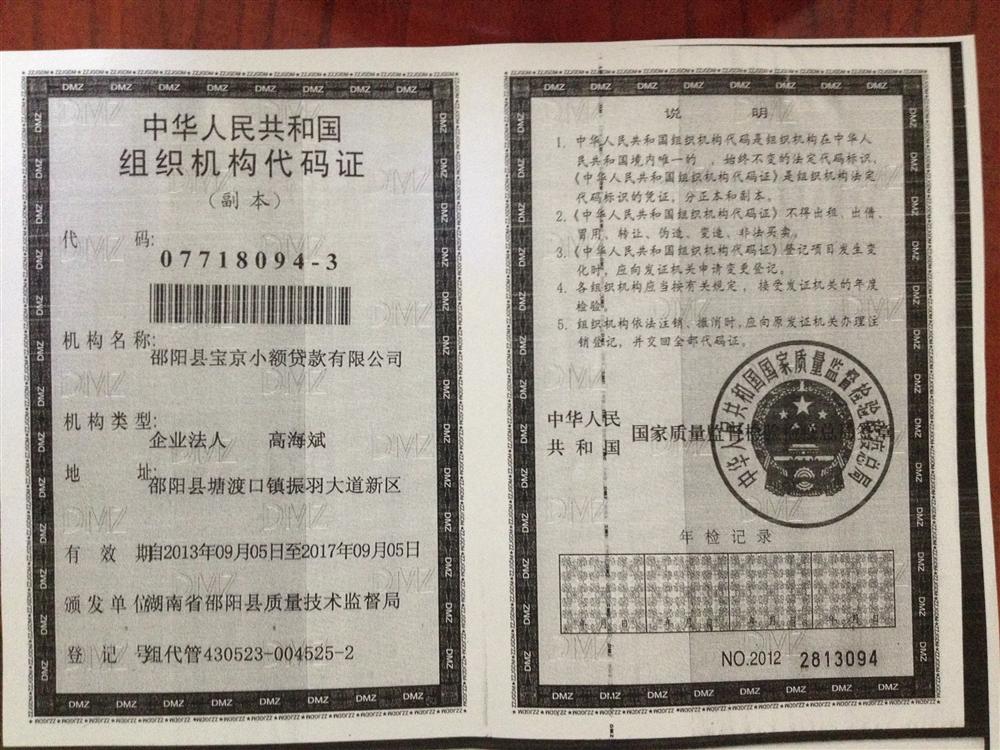 中华人民共和国
组织机构代码证
（副本）
代 码:
07718094-3
机构名称:
邵阳县宝京小额贷款有限公司
机构类型:
企业法人 高海斌
地 址:
邵阳县塘渡口镇振羽大道新区
有 效 期 自2013年09月05日至2017年09月05日
颁发单位 湖南省邵阳县质量技术监督局
登 记 号 组代管430523-004525-2
说 明
1. 中华人民共和国组织机构代码是组织机构在中华人
民共和国境内唯一的 、始终不变的法定代码标识，
《中华人民共和国组织机构代码证》是组织机构法定
代码标识的凭证，分正本和副本。
2.《中华人民共和国组织机构代码证》不得出租、出借、
冒用、转让、伪造、变造、非法买卖。
3.《中华人民共和国组织机构代码证》登记项目发生变
化时，应向发证机关申请变更登记。
4. 各组织机构应当按有关规定，接受发证机关的年度
检验。
5. 组织机构依法注销、撤消时，应向原发证机关办理注
销登记，并交回全部代码证。
中华人民
共和国
国家质量监督检验检疫总局签章
中华人民共和国国家质量监督检验检疫总局
年检记录
年 月 日 年 月 日 年 月 日 年 月 日
NO.2012 2813094